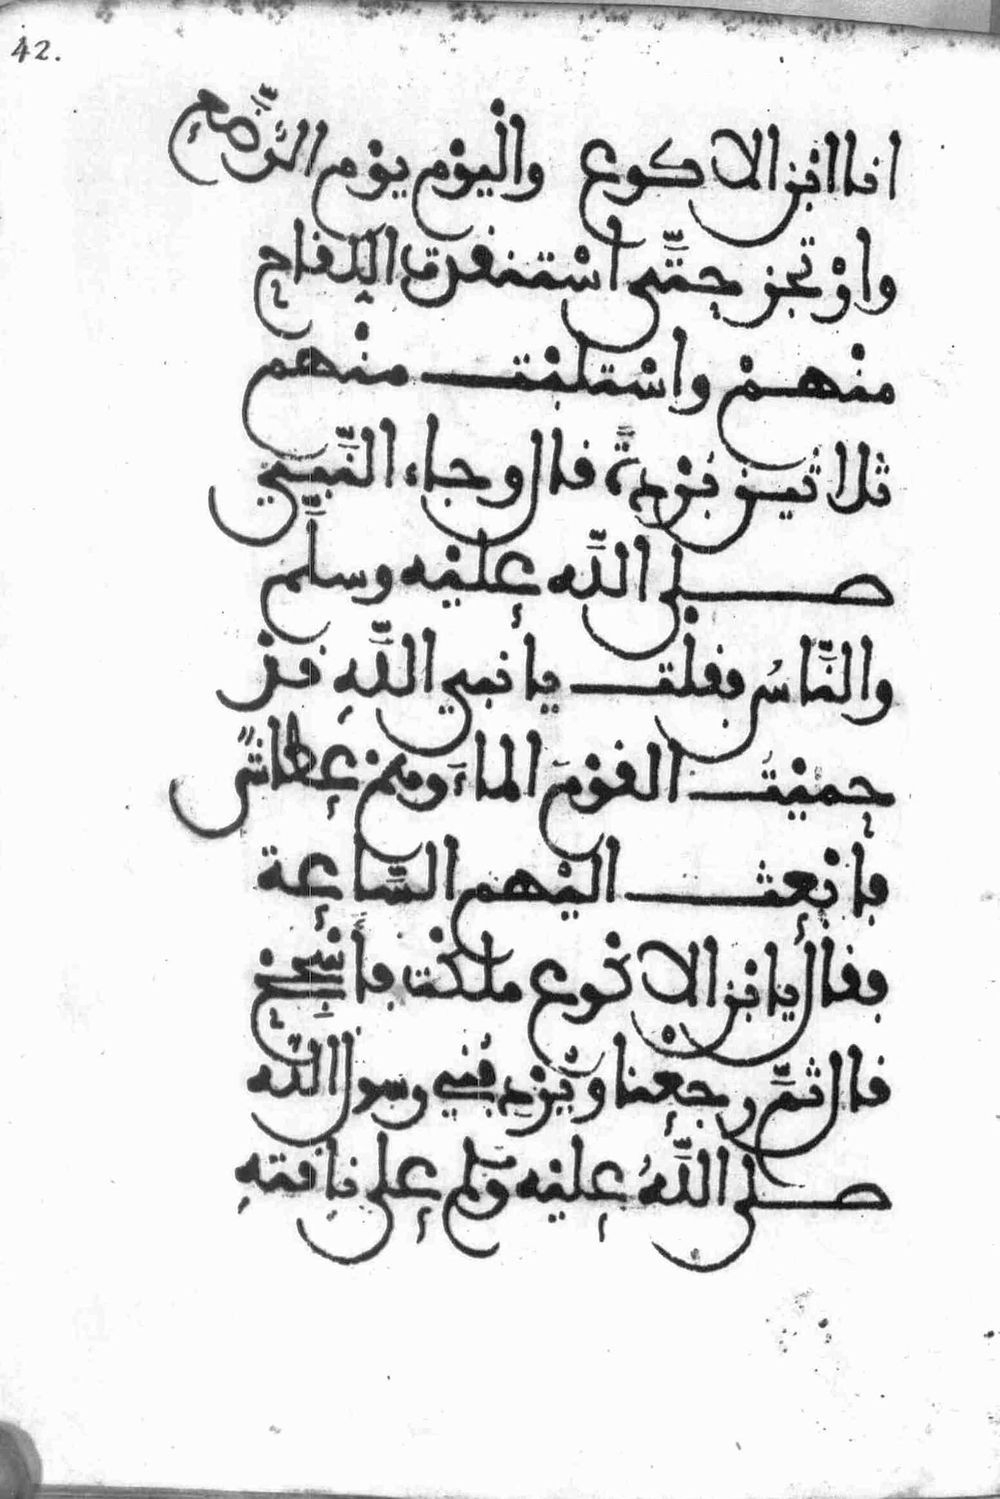 42.
انا ابن الاكوع واليوم يوم الرُّضَّعِ
وارْتجز حتَّى اسْتنقذت اللِّقاح
منْهمْ واسْتلبْت منْهم
ثلاثين بُرْدةً قال وجاء النَّبي
صلى اللَّه عليْه وسلَّم
والنَّاسُ فقلْت يا نبي اللَّهِ قدْ
حميْتُ القوْمَ الماءَ وهم عطاشٌ
فابْعث اليْهم السَّاعة
فقال يا ابْن الاكْوع ملكْتَ فأَسْجِحْ
قال ثمَّ رجعنا ويُرْدِفُني رسول اللَّه
صلى اللَّهُ عليْه وسلم على ناقتهِ